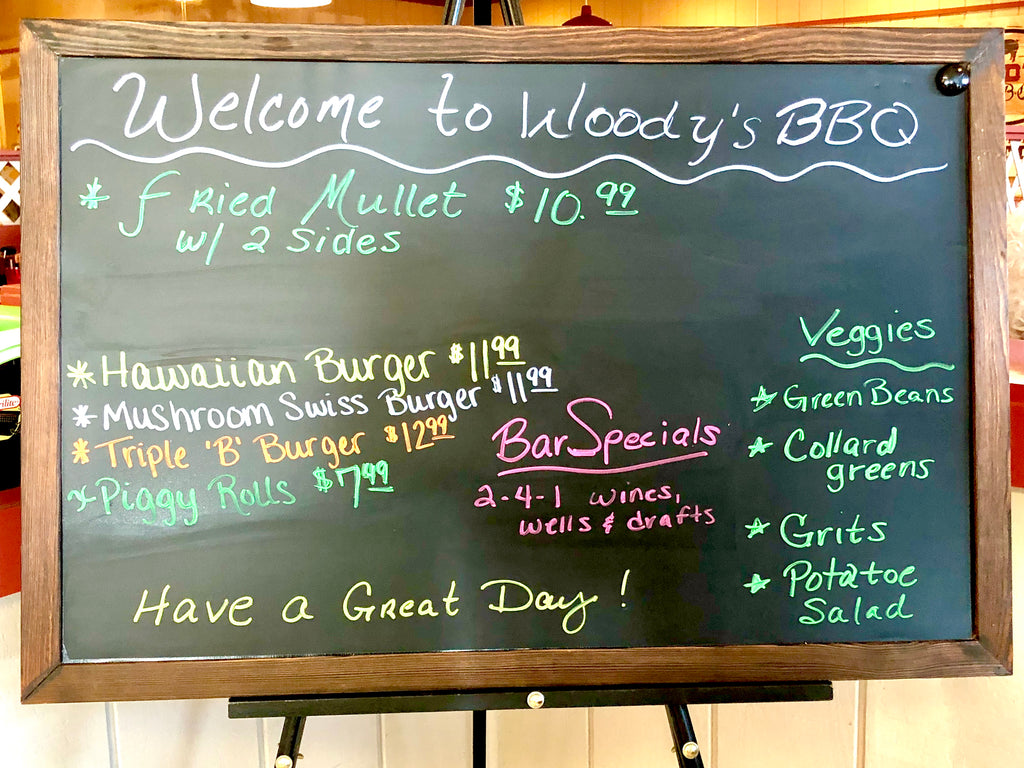 Welcome to Woody's BBQ
* Fried Mullet $10.99
w/ 2 Sides
* Hawaiian Burger $11.99
* Mushroom Swiss Burger $11.99
* Triple 'B' Burger $12.99
* Piggy Rolls $7.99
Bar Specials
2-4-1 wines,
wells & drafts
Veggies
* Green Beans
* Collard
greens
* Grits
* Potatoe
Salad
Have a Great Day!